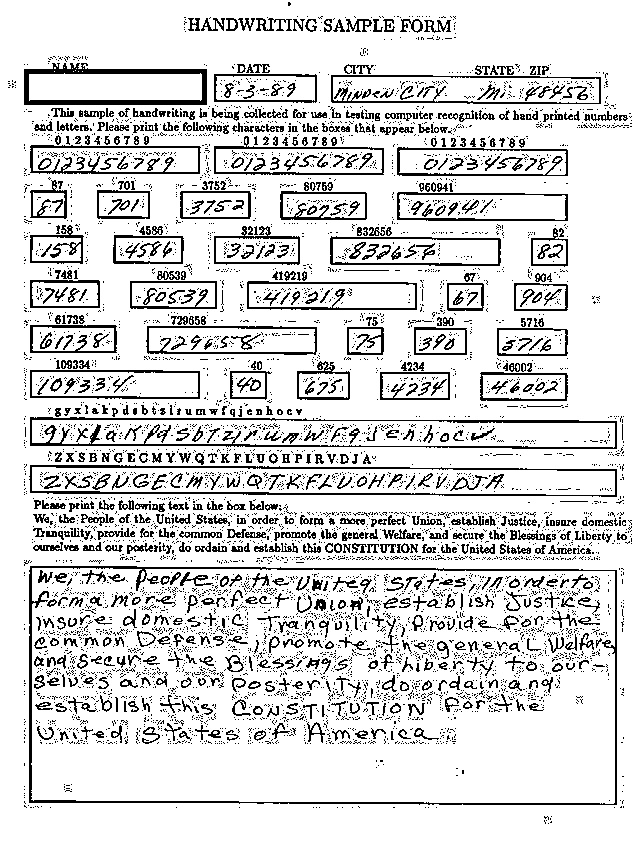 HANDWRITING SAMPLE FORM
NAME DATE CITY STATE ZIP
8-3-89 MINDEN CITY Mi 48456
This sample of handwriting is being collected for use in testing computer recognition of hand printed numbers
and letters. Please print the following characters in the boxes that appear below.
0 1 2 3 4 5 6 7 8 9 0 1 2 3 4 5 6 7 8 9 0 1 2 3 4 5 6 7 8 9
0123456789 0123456789 0123456789
87 701 3752 80759 960941
87 701 3752 80759 960941
158 4586 32123 832656 82
158 4586 32123 832656 82
7481 80539 419219 67 904
7481 80539 419219 67 904
61738 729658 75 390 5716
61738 729658 75 390 5716
109334 40 625 4234 46002
109334 40 675 4234 46002
g y x l a k p d s b t z i r u m w f q j e n h o c v
g y x l a K p d S b T z i r u m W F q J e n h o c v
Z X S B N G E C M Y W Q T K F L U O H P I R V D J A
Z X S B N G E C M Y W Q T K F L U O H P I R V D J A
Please print the following text in the box below:
We, the People of the United States, in order to form a more perfect Union, establish Justice, insure domestic
Tranquility, provide for the common Defense, promote the general Welfare, and secure the Blessings of Liberty to
ourselves and our posterity, do ordain and establish this CONSTITUTION for the United States of America.
We, the People of the United States, in order to
form a more perfect Union, establish Justice,
insure domestic Tranquility, Provide for the
common Defense, promote the general Welfare,
and secure the Blessings of Liberty to our-
selves and our Posterity, do ordain and
establish this CONSTITUTION for the
United States of America